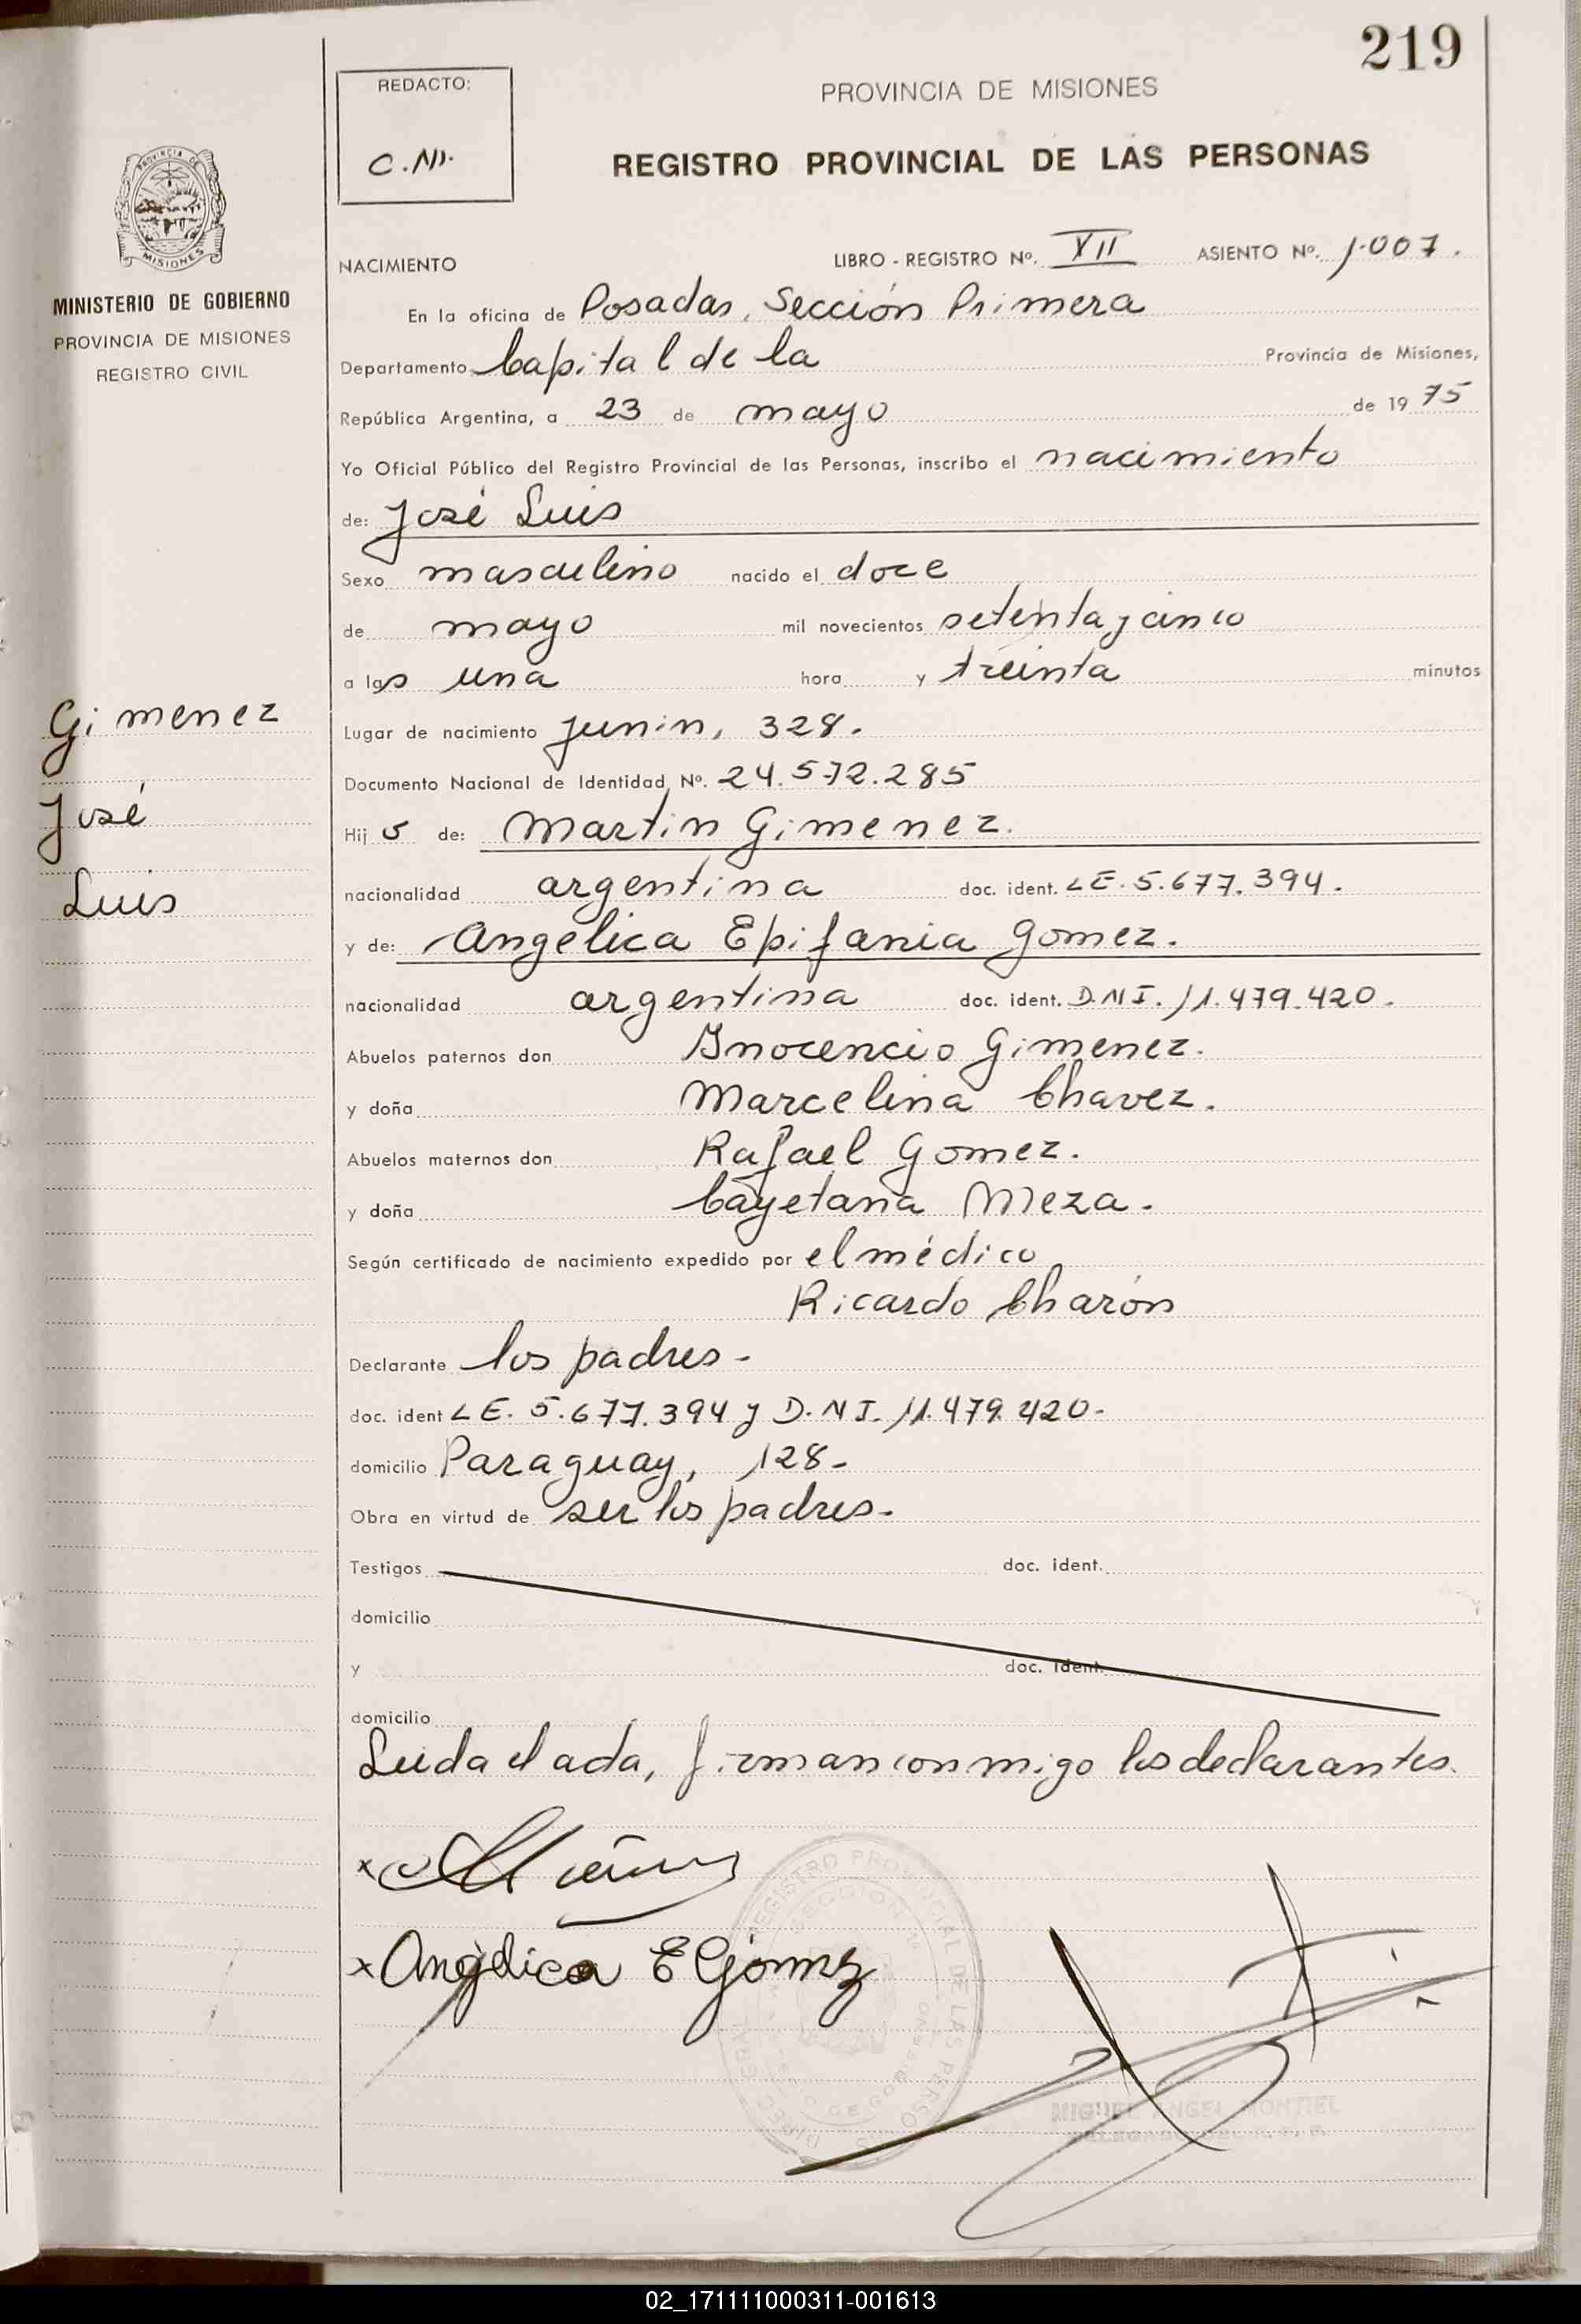 219
REDACTO:
C.N.
PROVINCIA DE MISIONES
REGISTRO PROVINCIAL DE LAS PERSONAS
PROVINCIA DE
MISIONES
MINISTERIO DE GOBIERNO
PROVINCIA DE MISIONES
REGISTRO CIVIL
NACIMIENTO LIBRO - REGISTRO Nº. XII ASIENTO Nº. 1.007.
En la oficina de Posadas, Sección Primera
Departamento Capital de la Provincia de Misiones,
República Argentina, a 23 de mayo de 1975
Yo Oficial Público del Registro Provincial de las Personas, inscribo el nacimiento
de: José Luis
Sexo masculino nacido el doce
de mayo mil novecientos setenta y cinco
a las una hora y treinta minutos
Gimenez
José
Luis
Lugar de nacimiento Junin, 328.
Documento Nacional de Identidad Nº. 24.572.285
Hijo de: Martin Gimenez.
nacionalidad argentina doc. ident. LE. 5.677.394.
y de: Angelica Epifania Gomez.
nacionalidad argentina doc. ident. D.N.I. 11.479.420.
Abuelos paternos don Inocencio Gimenez.
y doña Marcelina Chavez.
Abuelos maternos don Rafael Gomez.
y doña Cayetana Meza.
Según certificado de nacimiento expedido por el médico
Ricardo Charón
Declarante los padres -
doc. ident LE. 5.677.394 y D.N.I. 11.479.420-
domicilio Paraguay, 128-
Obra en virtud de ser los padres.
Testigos doc. ident.
domicilio
y doc. ident.
domicilio
Leida el acta, firman conmigo los declarantes.
x
x Angelica E Gomez
MIGUEL ANGEL MONTIEL
02_171111000311-001613